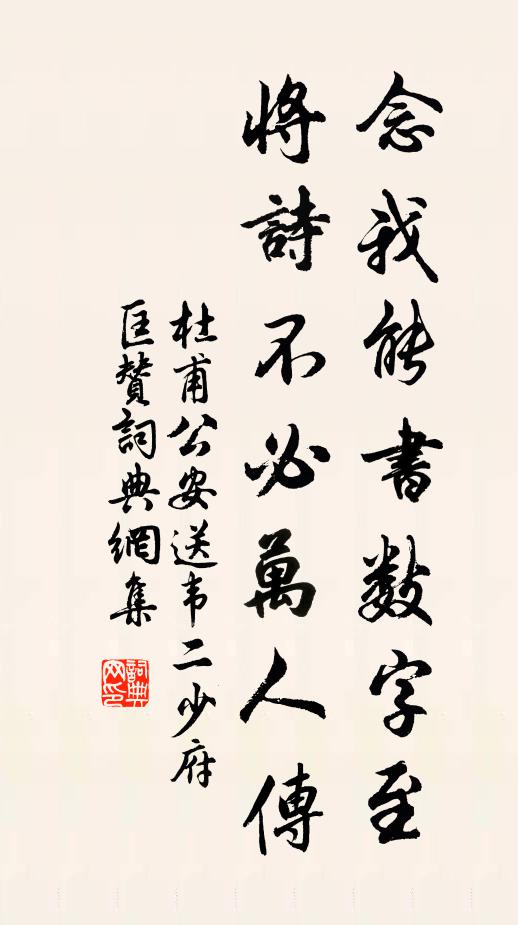 念我能書数字至
將詩不必萬人傳
杜甫公安送韦二少府
匡贊詞典網集
詞典网印